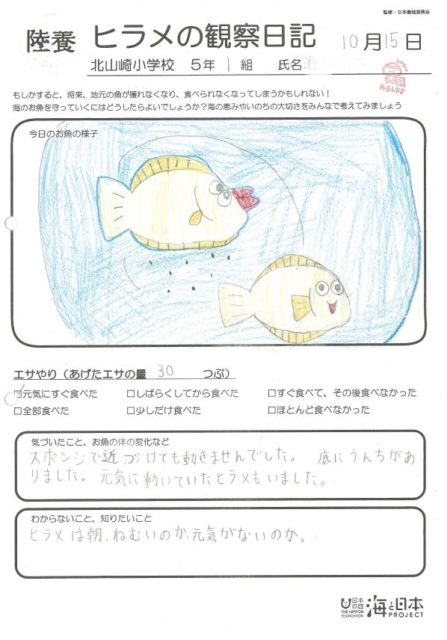 監修：日本養殖振興会
陸養 ヒラメの観察日記 10月15日
北山崎小学校 5年 1組 氏名
もしかすると、将来、地元の魚が獲れなくなり、食べられなくなってしまうかもしれない！
海のお魚を守っていくにはどうしたらよいでしょうか？海の恵みやいのちの大切さをみんなで考えてみましょう
今日のお魚の様子
エサやり（あげたエサの量 30 つぶ）
☑元気にすぐ食べた □しばらくしてから食べた □すぐ食べて、その後食べなかった
□全部食べた □少しだけ食べた □ほとんど食べなかった
気づいたこと、お魚の体の変化など
スポンジで近づけても動きませんでした。 底にうんちがあ
りました。元気に動いていたヒラメもいました。
わからないこと、知りたいこと
ヒラメは朝、ねむいのか、元気がないのか。
日本財団 THE NIPPON FOUNDATION 海と日本 PROJECT